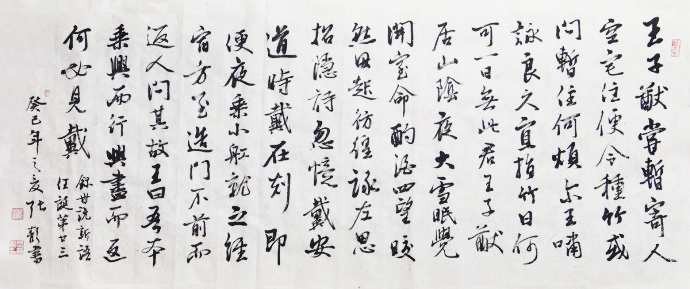 王子猷嘗暫寄人
空宅住便令種竹或
問暫住何煩尔王嘯
詠良久直指竹曰何
可一日無此君王子猷
居山陰夜大雪眠覺
開室命酌酒四望皎
然因起彷徨詠左思
招隱詩忽憶戴安
道時戴在剡即
便夜乘小船就之經
宿方至造門不前而
返人問其故王曰吾本
乘興而行興盡而返
何必見戴
錄世說新語
任誕第廿三
癸巳年之夏張書